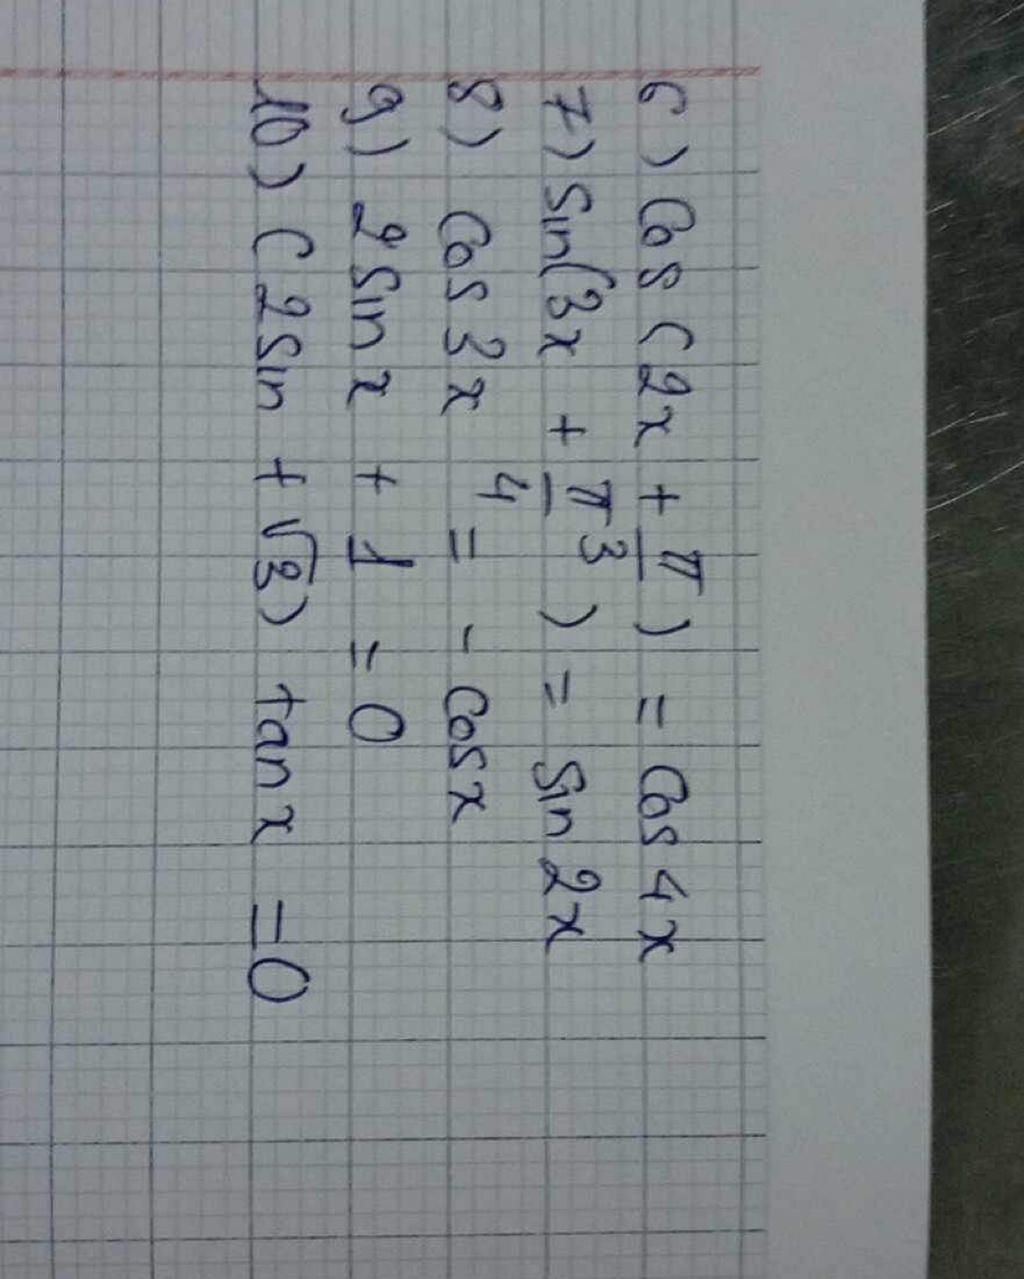 6) Cos (2x + π/3) = Cos 4x
7) Sin(3x + π/4) = Sin 2x
8) Cos 3x = - Cos x
9) 2 Sin x + 1 = 0
10) (2 Sin + √3) tan x = 0